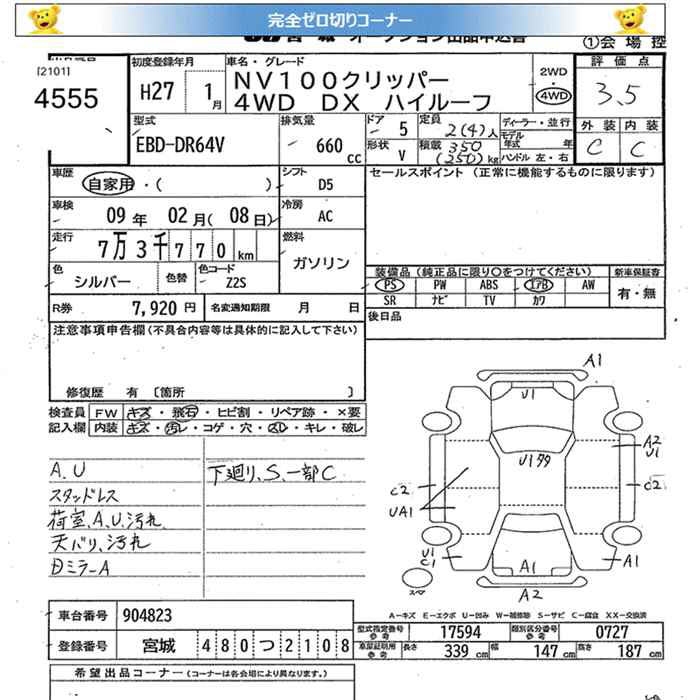 完全ゼロ切りコーナー
宮城 オークション出品申込書
①会場控
[2101]
4555
初度登録年月
H27 1月
車名・グレード
NV100クリッパー
4WD DX ハイルーフ
2WD
・
4WD
評価点
3.5
外装 内装
C C
型式
EBD-DR64V
排気量
660 cc
ドア 5
形状 V
定員 2(4)人
積載 350 (250)kg
ディーラー・並行
モデル年式 年
ハンドル 左・右
車歴
自家用・( )
シフト
D5
セールスポイント (正常に機能するものに限ります)
車検
09年 02月(08日)
冷房
AC
走行
7万3千770km
燃料
ガソリン
色
シルバー
色替
色コード
Z2S
装備品(純正品に限り○をつけてください)
新車保証書
PS PW ABS エアB AW
SR ナビ TV カワ
有・無
R券 7,920円
名変通知期限 月 日
後日品
注意事項申告欄(不具合内容等は具体的に記入して下さい)
修復歴 有 [箇所 ]
検査員 FW キズ・飛石・ヒビ割・リペア跡・×要
記入欄 内装 キズ・汚レ・コゲ・穴・スレ・キレ・破レ
A.U
スタッドレス
荷室、A、U、汚れ
天バリ、汚れ
Dミラー A
下廻り、S、一部C
A1
U1
U179
A2
U1
C2
C2
UA1
U1
C1
A1
A1
A2
スペア
A-キズ E-エクボ U-凹み W-補修跡 S-サビ C-腐食 XX-交換済
車台番号 904823
登録番号 宮城 480つ2108
型式指定番号 参考 17594
類別区分番号 参考 0727
車屋証明用 参考 長さ 339cm 幅 147cm 高さ 187cm
希望出品コーナー (コーナーは各会場により異なります。)